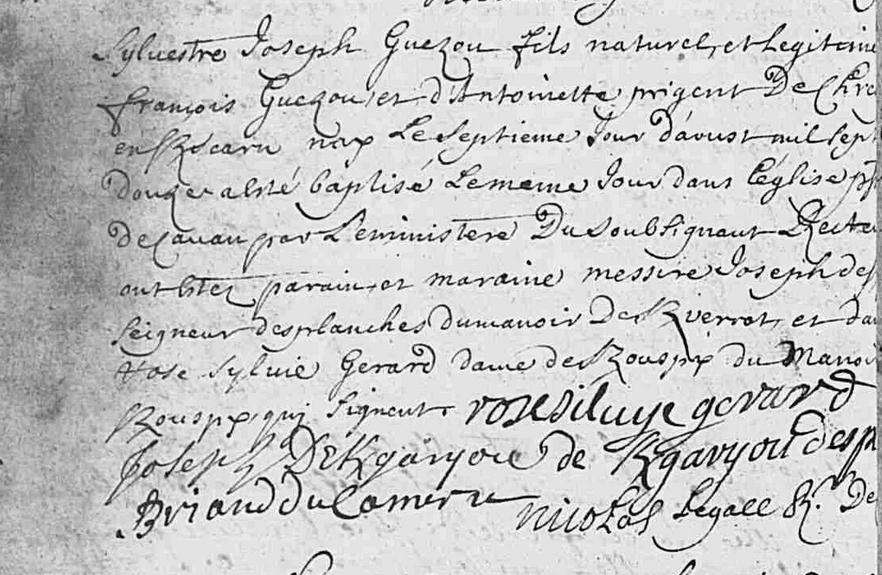 Sylvestre Joseph Guezou fils naturel, et legitime
françois Guezou, et d'Antoinette prigent De
en nay Le septieme Jour d'avust mil sept
douze a esté baptisé Le meme Jour dans l'église
de Cavan par Le ministere Du Soubsignant Recte
ont estez parain, et maraine messire Joseph
Seigneur desplanches du manoir De et
rose sylvie Gerard dame de du Manoi
qui signent. rose siluye gerard
Joseph De Kgaryou de Kgaryou desp
Briand du nicolas Legall De